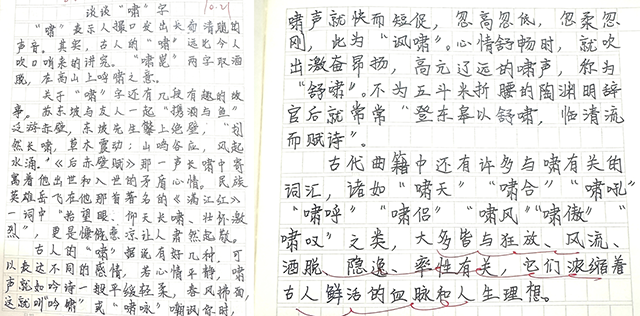 谈谈“啸”字
10.21
“啸”表示人撮口发出长而清脆的
声音。其实，古人的“啸”远比今人
吹口哨来的讲究。“啸崑”两字取洒
脱，在高山上鸣啸之意。
关于“啸”字还有几段有趣的故
事。苏东坡与友人一起“携酒与鱼”
泛游赤壁，东坡先生攀上绝壁，“划
然长啸，草木震动；山鸣谷应，风起
水涌。”《后赤壁赋》那一声长啸中寄
寓着他出世和入世的矛盾心情。民族
英雄岳飞在他那首著名的《满江红》
一词中“抬望眼、仰天长啸、壮怀激
烈”，更是慷慨悲凉让人肃然起敬。
古人的“啸”据说有好几种，可
以表达不同的感情，若心情平静，啸
声就如吟诗一般平缓轻柔，春风拂面，
这就叫“吟啸”或“啸咏”嘲讽你时，
啸声就快而短促，忽高忽低，忽柔忽
刚，此为“讽啸”。心情舒畅时，就吹
出激奋昂扬，高亢辽远的啸声，称为
“舒啸”。不为五斗米折腰的陶渊明辞
官后就常常“登东皋以舒啸，临清流
而赋诗”。
古代典籍中还有许多与啸有关的
词汇，诸如“啸天”“啸合”“啸吼”
“啸呼”“啸侣”“啸风”“啸傲”
啸叹”之类，大多皆与狂放、风流、
洒脱、隐逸、率性有关，它们浓缩着
古人鲜活的血脉和人生理想。